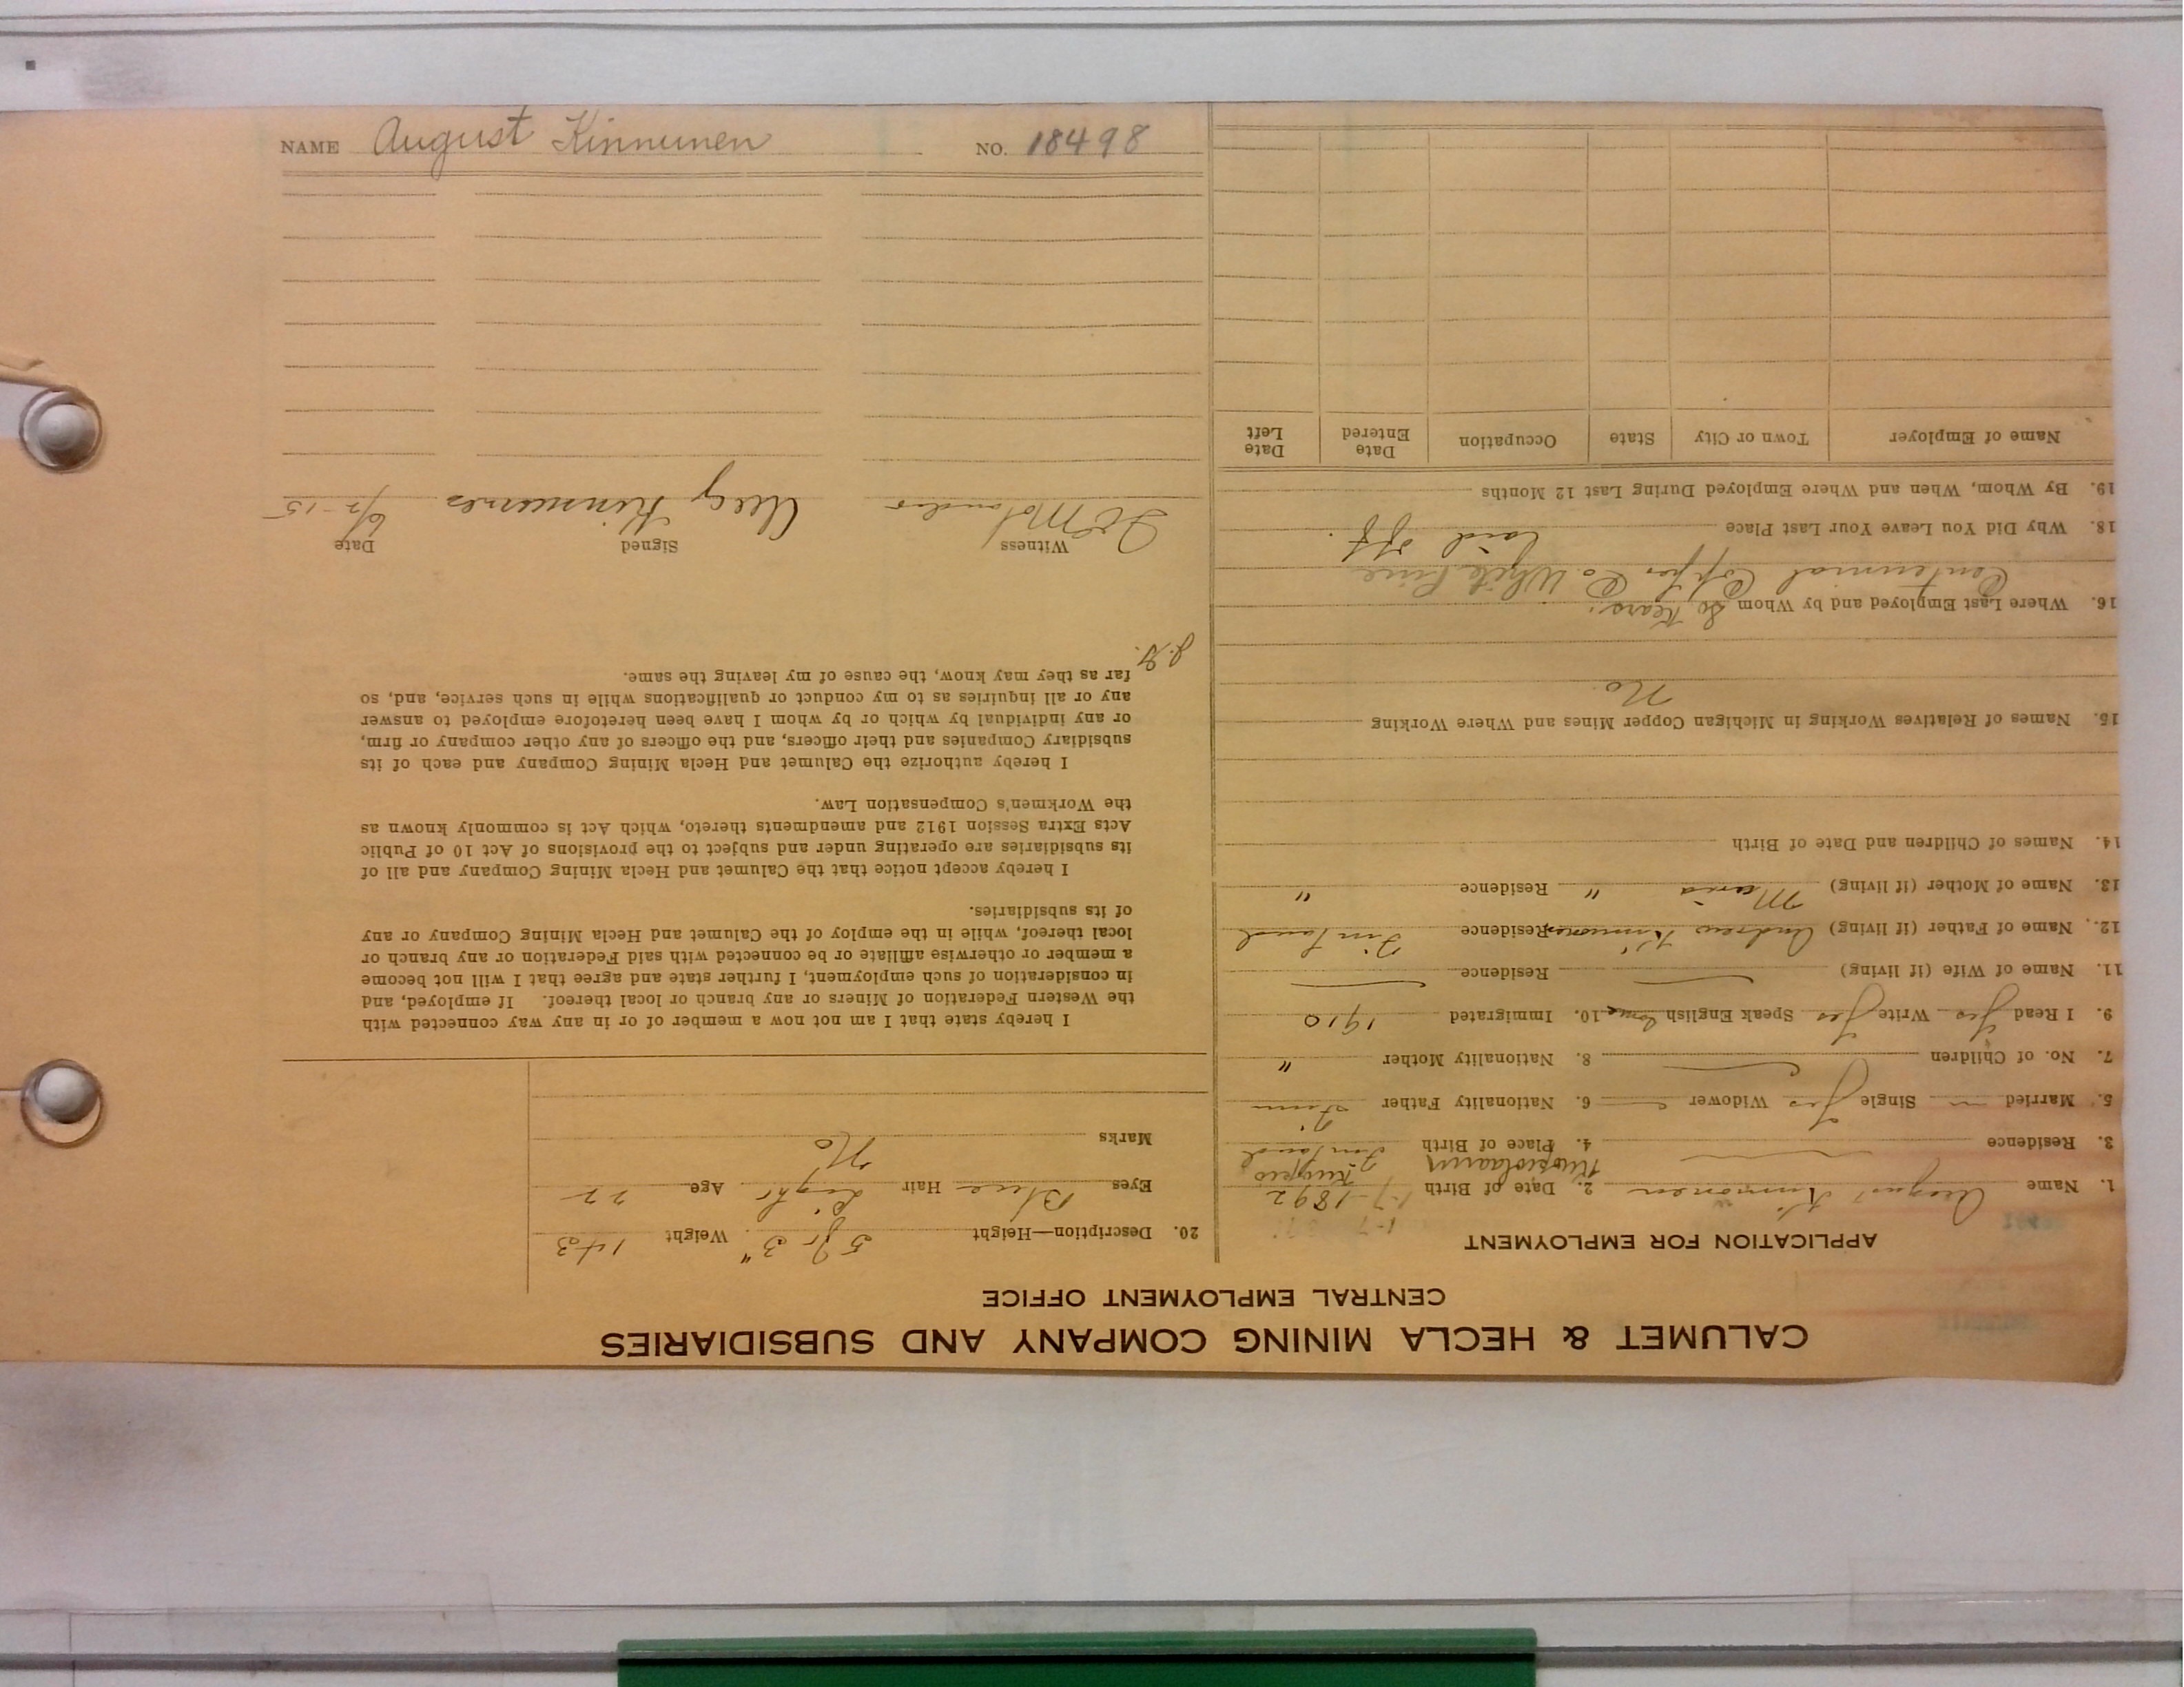 NAME August Kinnunen NO. 18498
CALUMET & HECLA MINING COMPANY AND SUBSIDIARIES
CENTRAL EMPLOYMENT OFFICE
APPLICATION FOR EMPLOYMENT
1. Name August Kinnonen 2. Date of Birth 1-7-1892
Kuopio
3. Residence 4. Place of Birth Finland
5. Married Single Yes Widower 6. Nationality Father Finn
7. No. of Children 8. Nationality Mother "
9. I Read Yes Write Yes Speak English some 10. Immigrated 1910
11. Name of Wife (if living) Residence
12. Name of Father (if living) Andrew Kinnonen Residence Finland
13. Name of Mother (if living) Maria " Residence "
14. Names of Children and Date of Birth
15. Names of Relatives Working in Michigan Copper Mines and Where Working
No.
16. Where Last Employed and by Whom
Centennial Copper Co. White Pine
18. Why Did You Leave Your Last Place laid off.
19. By Whom, When and Where Employed During Last 12 Months
Name of Employer Town or City State Occupation Date Entered Date Left
20. Description—Height 5 ft 3" Weight 143
Eyes Blue Hair Light Age 22
Marks No
I hereby state that I am not now a member of or in any way connected with
the Western Federation of Miners or any branch or local thereof. If employed, and
in consideration of such employment, I further state and agree that I will not become
a member or otherwise affiliate or be connected with said Federation or any branch or
local thereof, while in the employ of the Calumet and Hecla Mining Company or any
of its subsidiaries.
I hereby accept notice that the Calumet and Hecla Mining Company and all of
its subsidiaries are operating under and subject to the provisions of Act 10 of Public
Acts Extra Session 1912 and amendments thereto, which Act is commonly known as
the Workmen's Compensation Law.
I hereby authorize the Calumet and Hecla Mining Company and each of its
subsidiary Companies and their officers, and the officers of any other company or firm,
or any individual by which or by whom I have been heretofore employed to answer
any or all inquiries as to my conduct or qualifications while in such service, and, so
far as they may know, the cause of my leaving the same.
Witness Signed Date
Kinnunen